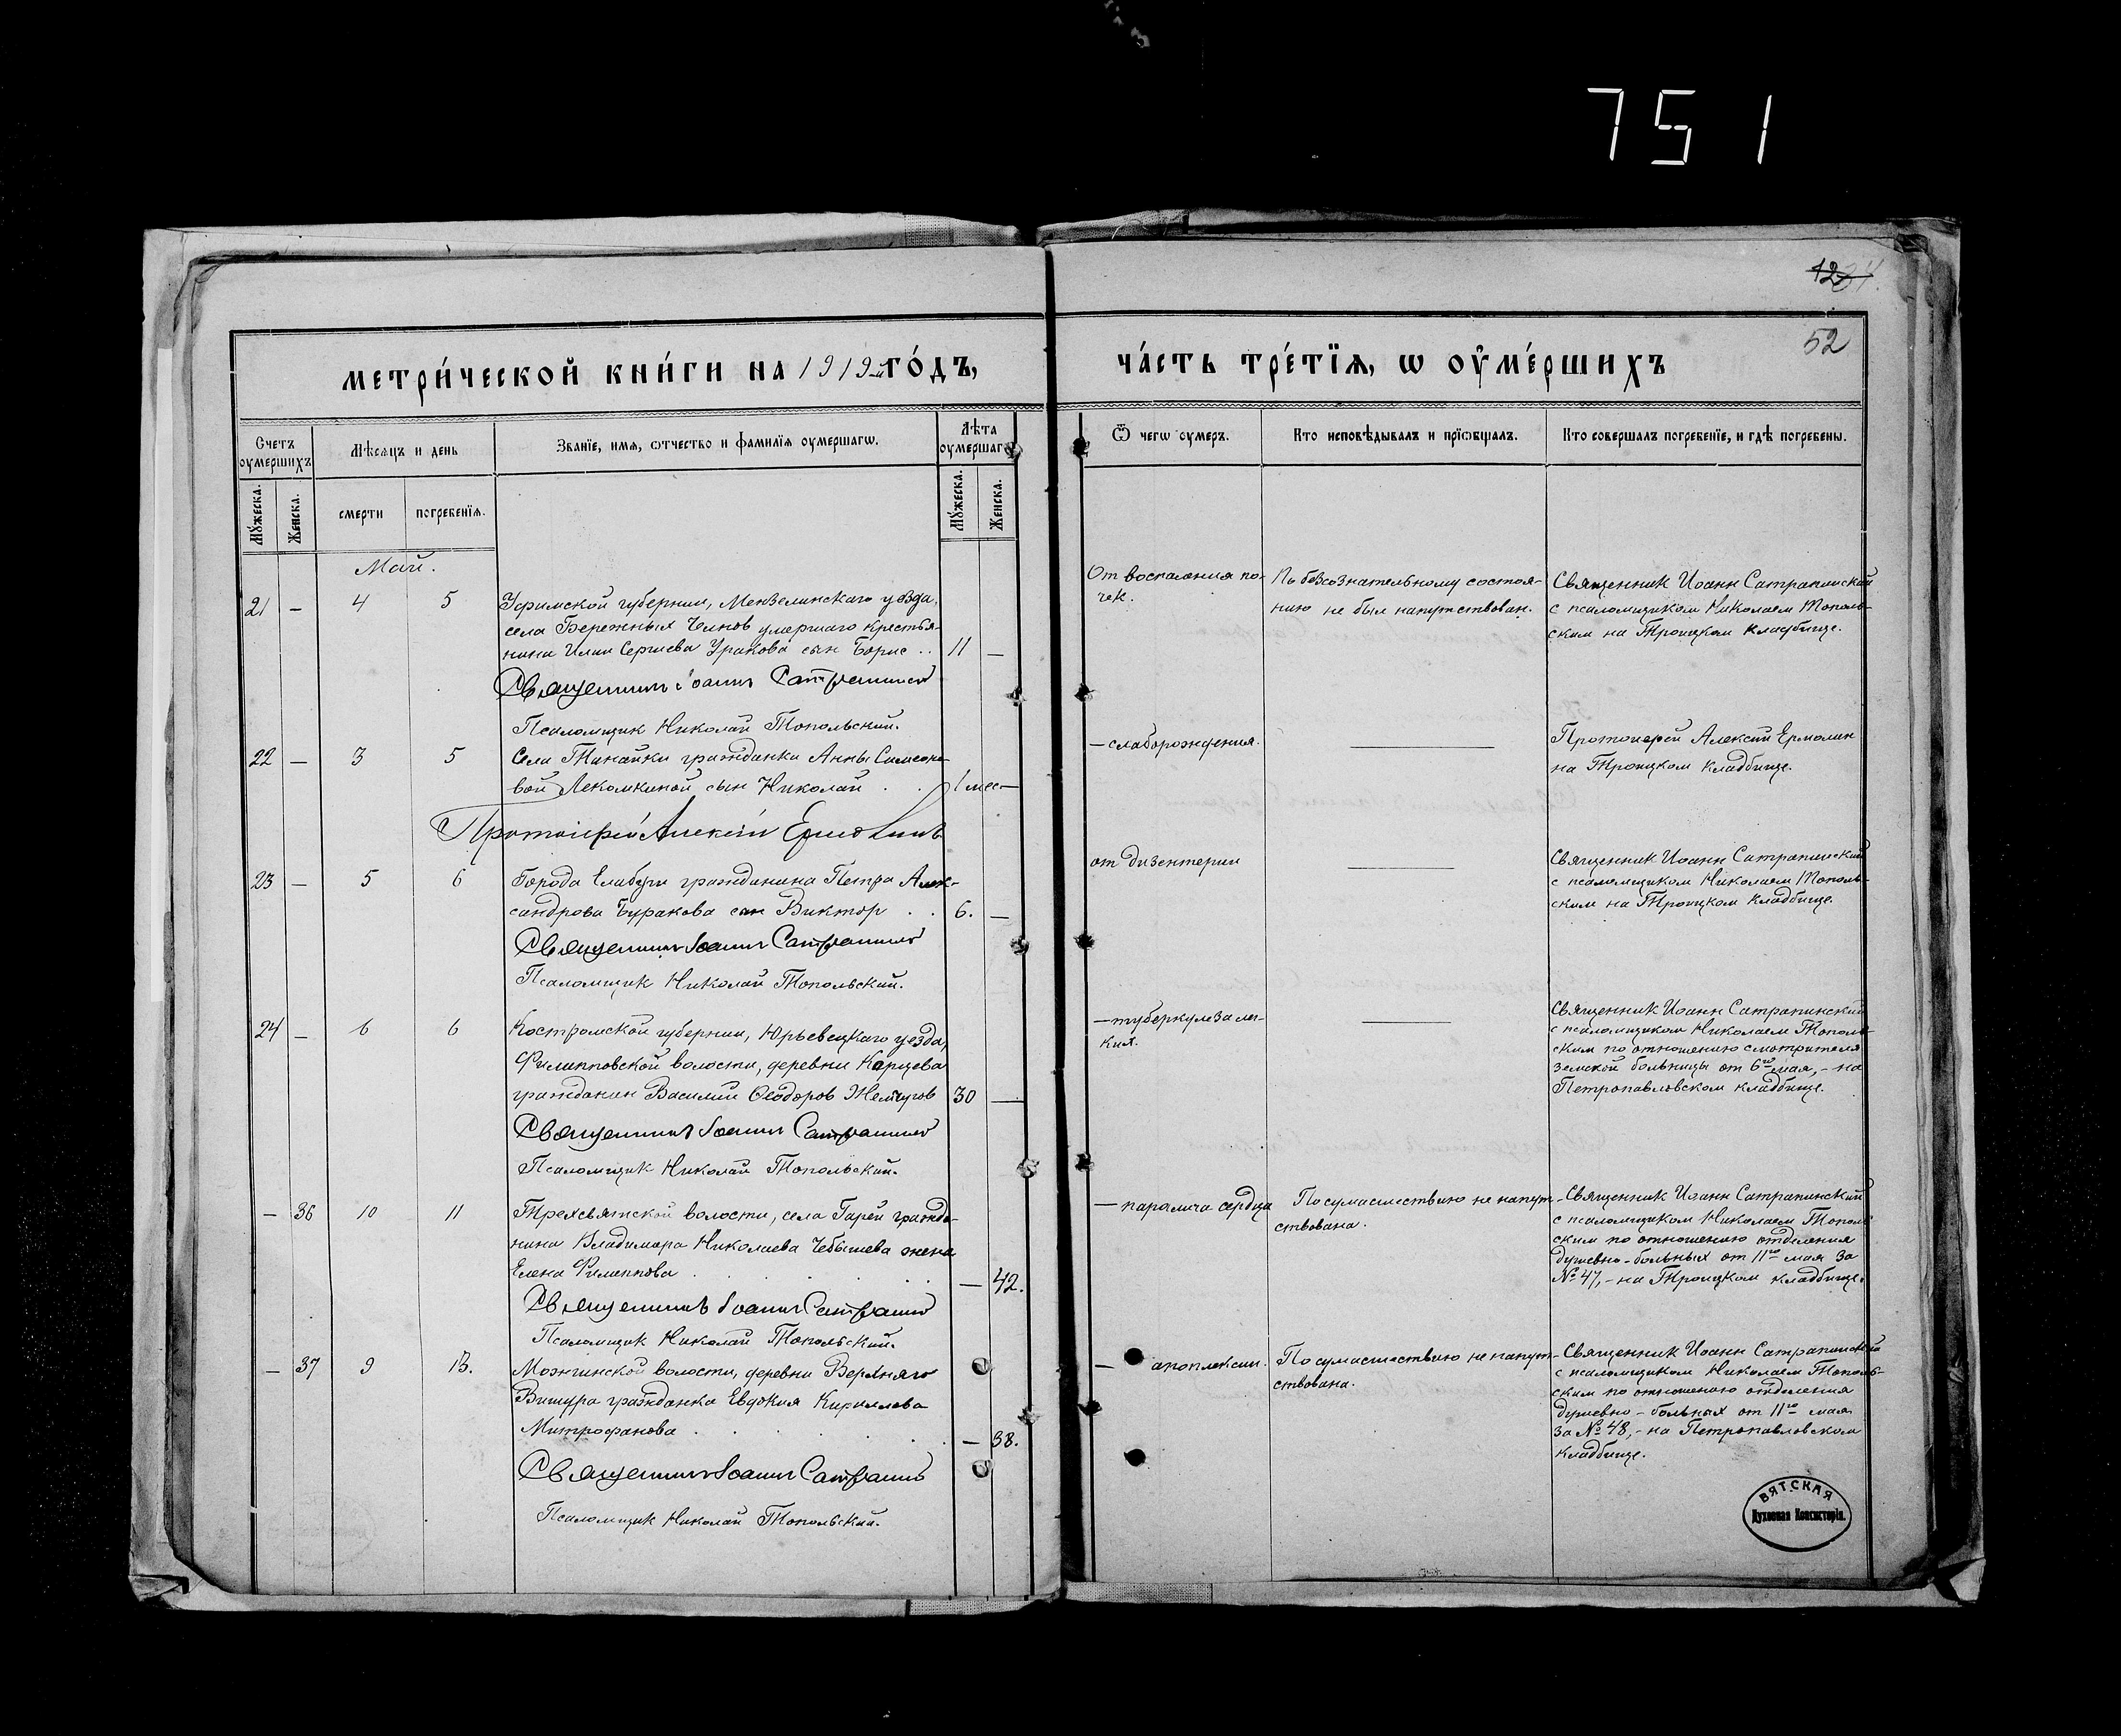 751
12
52
МЕТРИ́ЧЕСКОЙ КНИ́ГИ НА 1919-й ГО́ДЪ,
ЧА́СТЬ ТРЕ́ТЇЯ, Ѡ ОУ҆МЕ́РШИХЪ
Счетъ оумершихъ
Мѣсяцъ и день
Званїе, имя, ѡтчество и фамилїя оумершагѡ.
Лѣта оумершагѡ
Ѿ чегѡ оумеръ.
Кто исповѣдывалъ и прїѡбщалъ.
Кто совершалъ погребенїе, и гдѣ погребены.
Мꙋжеска.
Женска.
смерти
погребенїя.
Мꙋжеска.
Женска.
Май.
21 — 4 5
Уфимской губернии, Мензелинскаго уезда,
села Бережных Челнов умершаго крестья-
нина Илии Сергиева Уракова сын Борис . . 11 —
Священникъ Іоаннъ Сатрапинскій
Псаломщик Николай Топольский.
От воспаления по-
чек.
По безсознательному состоя-
нию не был напутствован.
Священник Иоанн Сатрапинский
с псаломщиком Николаем Тополь-
ским на Троицком кладбище.
22 — 3 5
Села Танайки гражданки Анны Симеоно-
вой Лекомкиной сын Николай . . 1 мес. —
Протоіерей Алексій Ермолинъ
— слаборождения.
Протоиерей Алексий Ермолин
на Троицком кладбище.
23 — 5 6
Города Елабуги гражданина Петра Алек-
сандрова Буракова сын Виктор . . 6. —
Священникъ Іоаннъ Сатрапинскій
Псаломщик Николай Топольский.
от дизентерии
Священник Иоанн Сатрапинский
с псаломщиком Николаем Тополь-
ским на Троицком кладбище.
24 — 6 6
Костромской губернии, Юрьевецкаго уезда,
Филипповской волости, деревни Карцева
гражданин Василий Феодоров 30 —
Священникъ Іоаннъ Сатрапинскій
Псаломщик Николай Топольский.
— туберкулеза лег-
ких.
Священник Иоанн Сатрапинский
с псаломщиком Николаем Тополь-
ским по отношению смотрителя
земской больницы от 6го мая, - на
Петропавловском кладбище.
— 36 10 11
Трехсвятской волости, села Гарей гражда-
нина Владимира Николаева Чебышева жена
Елена Филиппова . . . . . . — 42.
Священникъ Іоаннъ Сатрапинскій
Псаломщик Николай Топольский.
— паралича сердца
По сумасшествию не напут-
ствована.
Священник Иоанн Сатрапинский
с псаломщиком Николаем Тополь-
ским по отношению отделения
душевно-больных от 11го мая за
№ 47, - на Троицком кладбище.
— 37 9 13.
Можгинской волости, деревни Верхняго
Вишура гражданка Евдокия Кириллова
Митрофанова . . . . . . — 38.
Священникъ Іоаннъ Сатрапинскій
Псаломщик Николай Топольский.
— апоплексии.
По сумасшествию не напут-
ствована.
Священник Иоанн Сатрапинский
с псаломщиком Николаем Тополь-
ским по отношению отделения
душевно-больных от 11го мая
за № 48, - на Петропавловском
кладбище.
ВЯТСКАЯ
Духовная Консисторія.